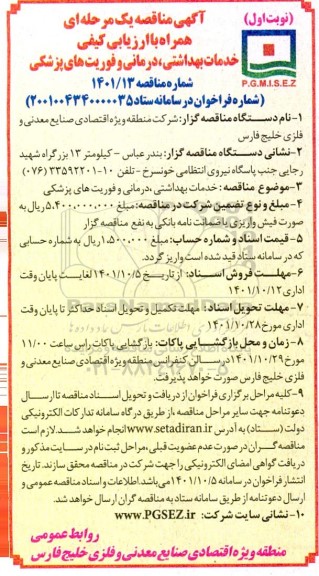 (نوبت اول)
آگهی مناقصه یک مرحله ای
همراه با ارزیابی کیفی
خدمات بهداشتی، درمانی و فوریت های پزشکی
P.G.M.I.S.E.Z
شماره مناقصه ۱۴۰۱/۱۳
(شماره فراخوان در سامانه ستاد ۲۰۰۱۰۰۴۳۴۰۰۰۰۰۳۵)
۱- نام دستگاه مناقصه گزار: شرکت منطقه ویژه اقتصادی صنایع معدنی و
فلزی خلیج فارس
۲- نشانی دستگاه مناقصه گزار: بندر عباس - کیلومتر ۱۳ بزرگراه شهید
رجایی جنب پاسگاه نیروی انتظامی خونسرخ - تلفن ۱۰-۳۳۵۹۲۲۰۱ (۰۷۶)
۳- موضوع مناقصه: خدمات بهداشتی، درمانی و فوریت های پزشکی
۴- مبلغ و نوع تضمین شرکت در مناقصه: مبلغ ۵,۴۰۰,۰۰۰,۰۰۰ ریال به
صورت فیش واریزی یا ضمانت نامه بانکی به نفع مناقصه گزار
۵- قیمت اسناد و شماره حساب: مبلغ ۱,۵۰۰,۰۰۰ ریال به شماره حسابی
که در سامانه ستاد قید شده است واریز گردد.
۶- مهلت فروش اسناد: از تاریخ ۱۴۰۱/۱۰/۵ لغایت پایان وقت
اداری ۱۴۰۱/۱۰/۱۲
۷- مهلت تحویل اسناد: مهلت تکمیل و تحویل اسناد حداکثر تا پایان وقت
اداری مورخ ۱۴۰۱/۱۰/۲۸
۸- زمان و محل بازگشایی پاکات: بازگشایی پاکات راس ساعت ۱۱:۰۰
مورخ ۱۴۰۱/۱۰/۲۹ در سالن کنفرانس منطقه ویژه اقتصادی صنایع معدنی و
فلزی خلیج فارس صورت خواهد پذیرفت.
۹- کلیه مراحل برگزاری فراخوان از دریافت و تحویل اسناد مناقصه تا ارسال
دعوتنامه جهت سایر مراحل مناقصه، از طریق درگاه سامانه تدارکات الکترونیکی
دولت (ستاد) به آدرس www.setadiran.ir انجام خواهد شد. لازم است
مناقصه گران در صورت عدم عضویت قبلی، مراحل ثبت نام در سایت مذکور و
دریافت گواهی امضای الکترونیکی را جهت شرکت در مناقصه محقق سازند. تاریخ
انتشار فراخوان در سامانه ۱۴۰۱/۱۰/۵ می باشد اطلاعات و اسناد مناقصه عمومی و
ارسال دعوتنامه از طریق سامانه ستاد به مناقصه گران ارسال خواهد شد.
۱۰- نشانی سایت شرکت: www.PGSEZ.ir
روابط عمومی
منطقه ویژه اقتصادی صنایع معدنی و فلزی خلیج فارس